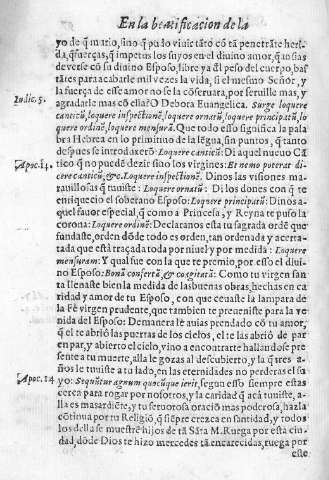 En la beatificacion de la
yo de qmario, sino q pudo viuir tãto cõ tã penetrãte heri-
da, q̃ fuerças, q impetus los suyos en el diuino amor, q ansias
deverse cõ su diuino Esposo, libre ya dl peso del cuerpo, bas
tãtes para acabarle mil vezes la vida, si el mesmo Señor, y
la fuerça de esse amor no se la cõseruara, por seruille mas, y
Iudic. 5.
agradarle mas cõ ella? O Debora Euangelica. Surge loquere
canticũ, loquere inspectionẽ, loquere ornatũ, loquere principatũ, lo
quere ordinẽ, loquere mensurã. Que todo esso significa la pala
bra Hebrea en lo primitiuo de la lẽgua, sin puntos, q̃ tanto
despues se introduxerõ: Loquere canticũ: Di aquel nueuo Cã
Apoc. 14.
tico q̃ no puedẽ dezir sino los virgines: Et nemo poterat di-
cere canticũ, &c. Loquere inspectionẽ. Dinos las visiones ma-
rauillosas q̃ tuuiste: Loquere ornatũ: Di los dones con q̃ te
enriquecio el soberano Esposo: Loquere principatũ: Dinos a-
quel fauor especial, q̃ como a Princesa, y Reyna te puso la
corona: Loquere ordinẽ: Declaranos esta tu sagrada ordẽ que
fundaste, orden dõde todo es orden, tan ordenada y acerta-
tada que està traçada toda por niuel y por medida: Loquere
mensuram: Y qual fue con la que te premio, por esso el diui-
no Esposo: Bonã confertã, & coagitatã: Como tu virgen san
ta llenaste bien la medida de las buenas obras, hechas en ca
ridad y amor de tu Esposo, con que ceuaste la lampara de
la Fê virgen prudente, que tambien te preueniste para la ve
nida del Esposo: De manera le auias prendado cõ tu amor,
q̃ el te abrió las puertas de los cielos, el te las abriò de par
en par, y abierto el cielo, vino a encontrarte hallandose pre
sente a tu muerte, alla le gozas al descubierto, y la q̃ tres a-
ños le tuuiste a tu lado, en las eternidades no perderas el su
Apoc. 14
yo: Sequũtur agnum quocũque ierit, segun esso siempre estas
cerca para rogar por nosotros, y la caridad q̃ acà tuuiste, a-
lla es mas ardiẽte, y tu feruorosa oraciõ mas poderosa, hazla
cõtinua por tu Religiõ, q̃ siẽpre crezca en santidad, y todos
los della se muestrẽ hijos de tã Sãta M. Ruega por esta ciu-
dad, dõde Dios te hizo mercedes tã encarecidas, ruega por
este